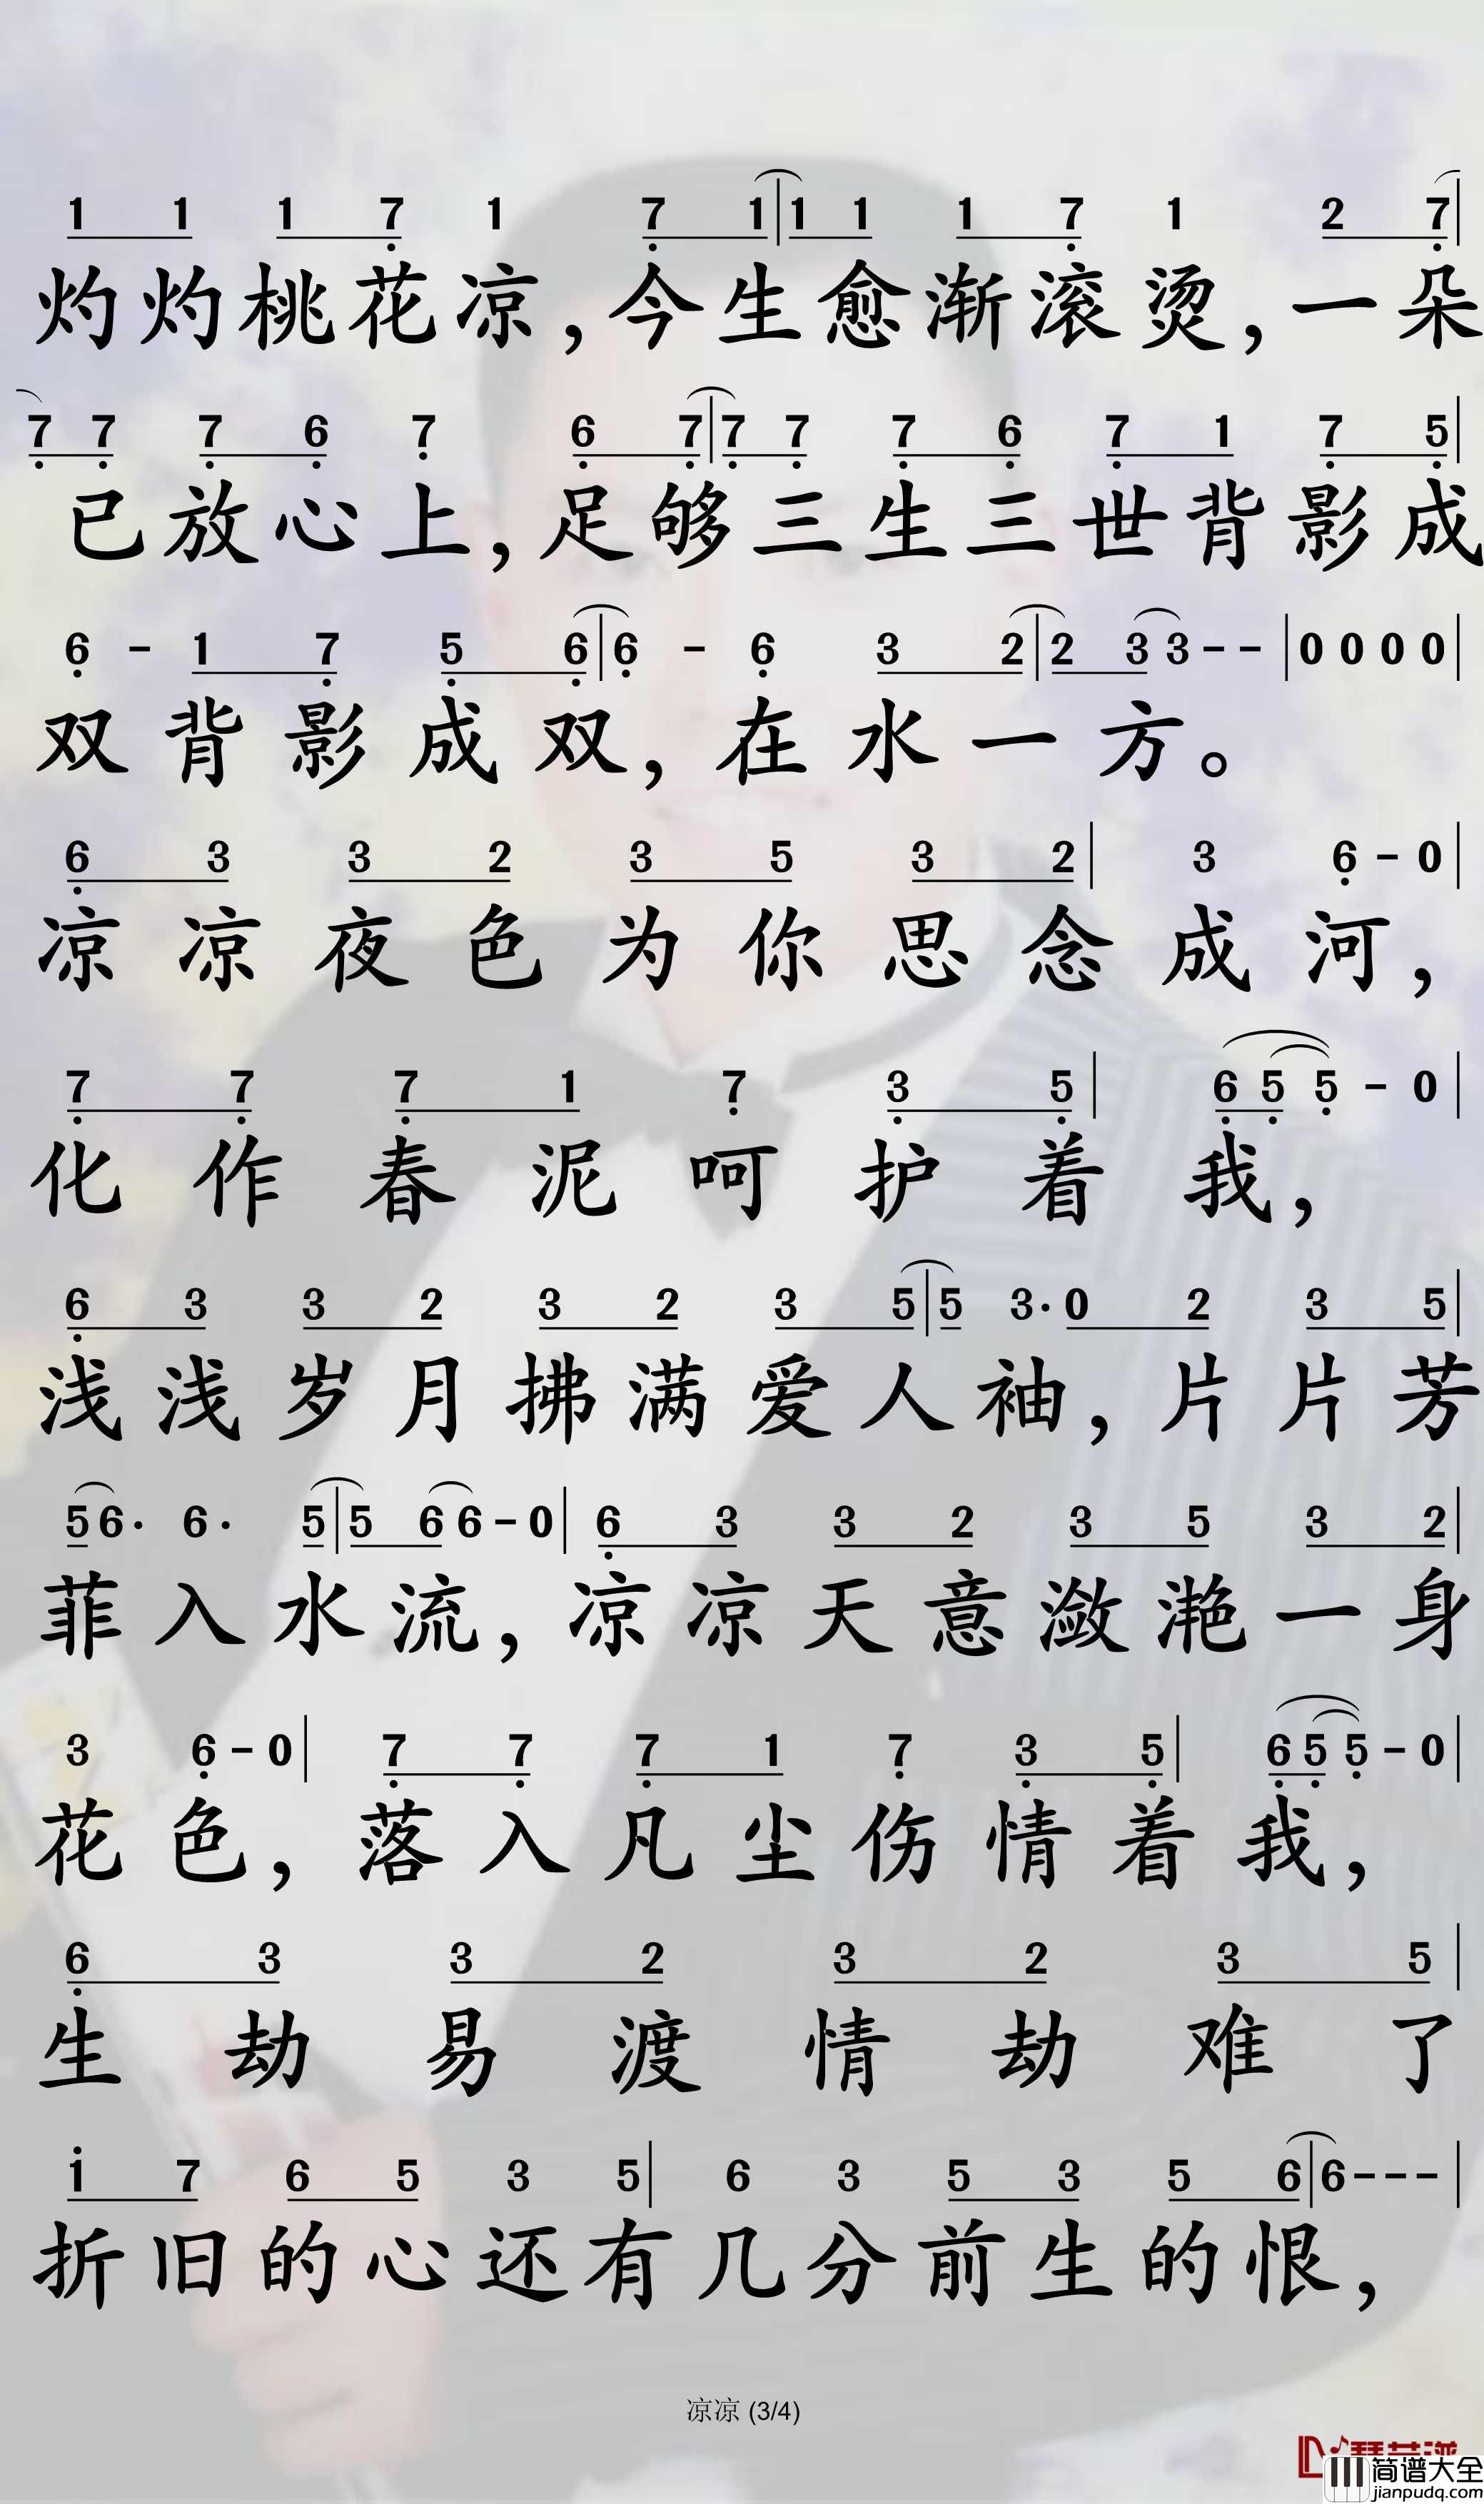 1 1 1 7 1 7 1|1 1 1 7 1 2 7|
灼灼桃花凉,今生愈渐滚烫,一朵
7 7 7 6 7 6 7|7 7 7 6 7 1 7 5|
已放心上,足够三生三世背影成
6 - 1 7 5 6|6 - 6 3 2|2 3 3 - -|0 0 0 0|
双背影成双,在水一方。
6 3 3 2 3 5 3 2|3 6 - 0|
凉凉夜色为你思念成河,
7 7 7 1 7 3 5|6 5 5 - 0|
化作春泥呵护着我,
6 3 3 2 3 2 3 5|5 3· 0 2 3 5|
浅浅岁月拂满爱人袖,片片芳
5 6· 6· 5|5 6 6 - 0|6 3 3 2 3 5 3 2|
菲入水流,凉凉天意潋滟一身
3 6 - 0|7 7 7 1 7 3 5|6 5 5 - 0|
花色,落入凡尘伤情着我,
6 3 3 2 3 2 3 5|
生劫易渡情劫难了
1 7 6 5 3 5|6 3 5 3 5 6|6 - - -|
折旧的心还有几分前生的恨,
凉凉 (3/4)
简谱大全
jianpudq.com